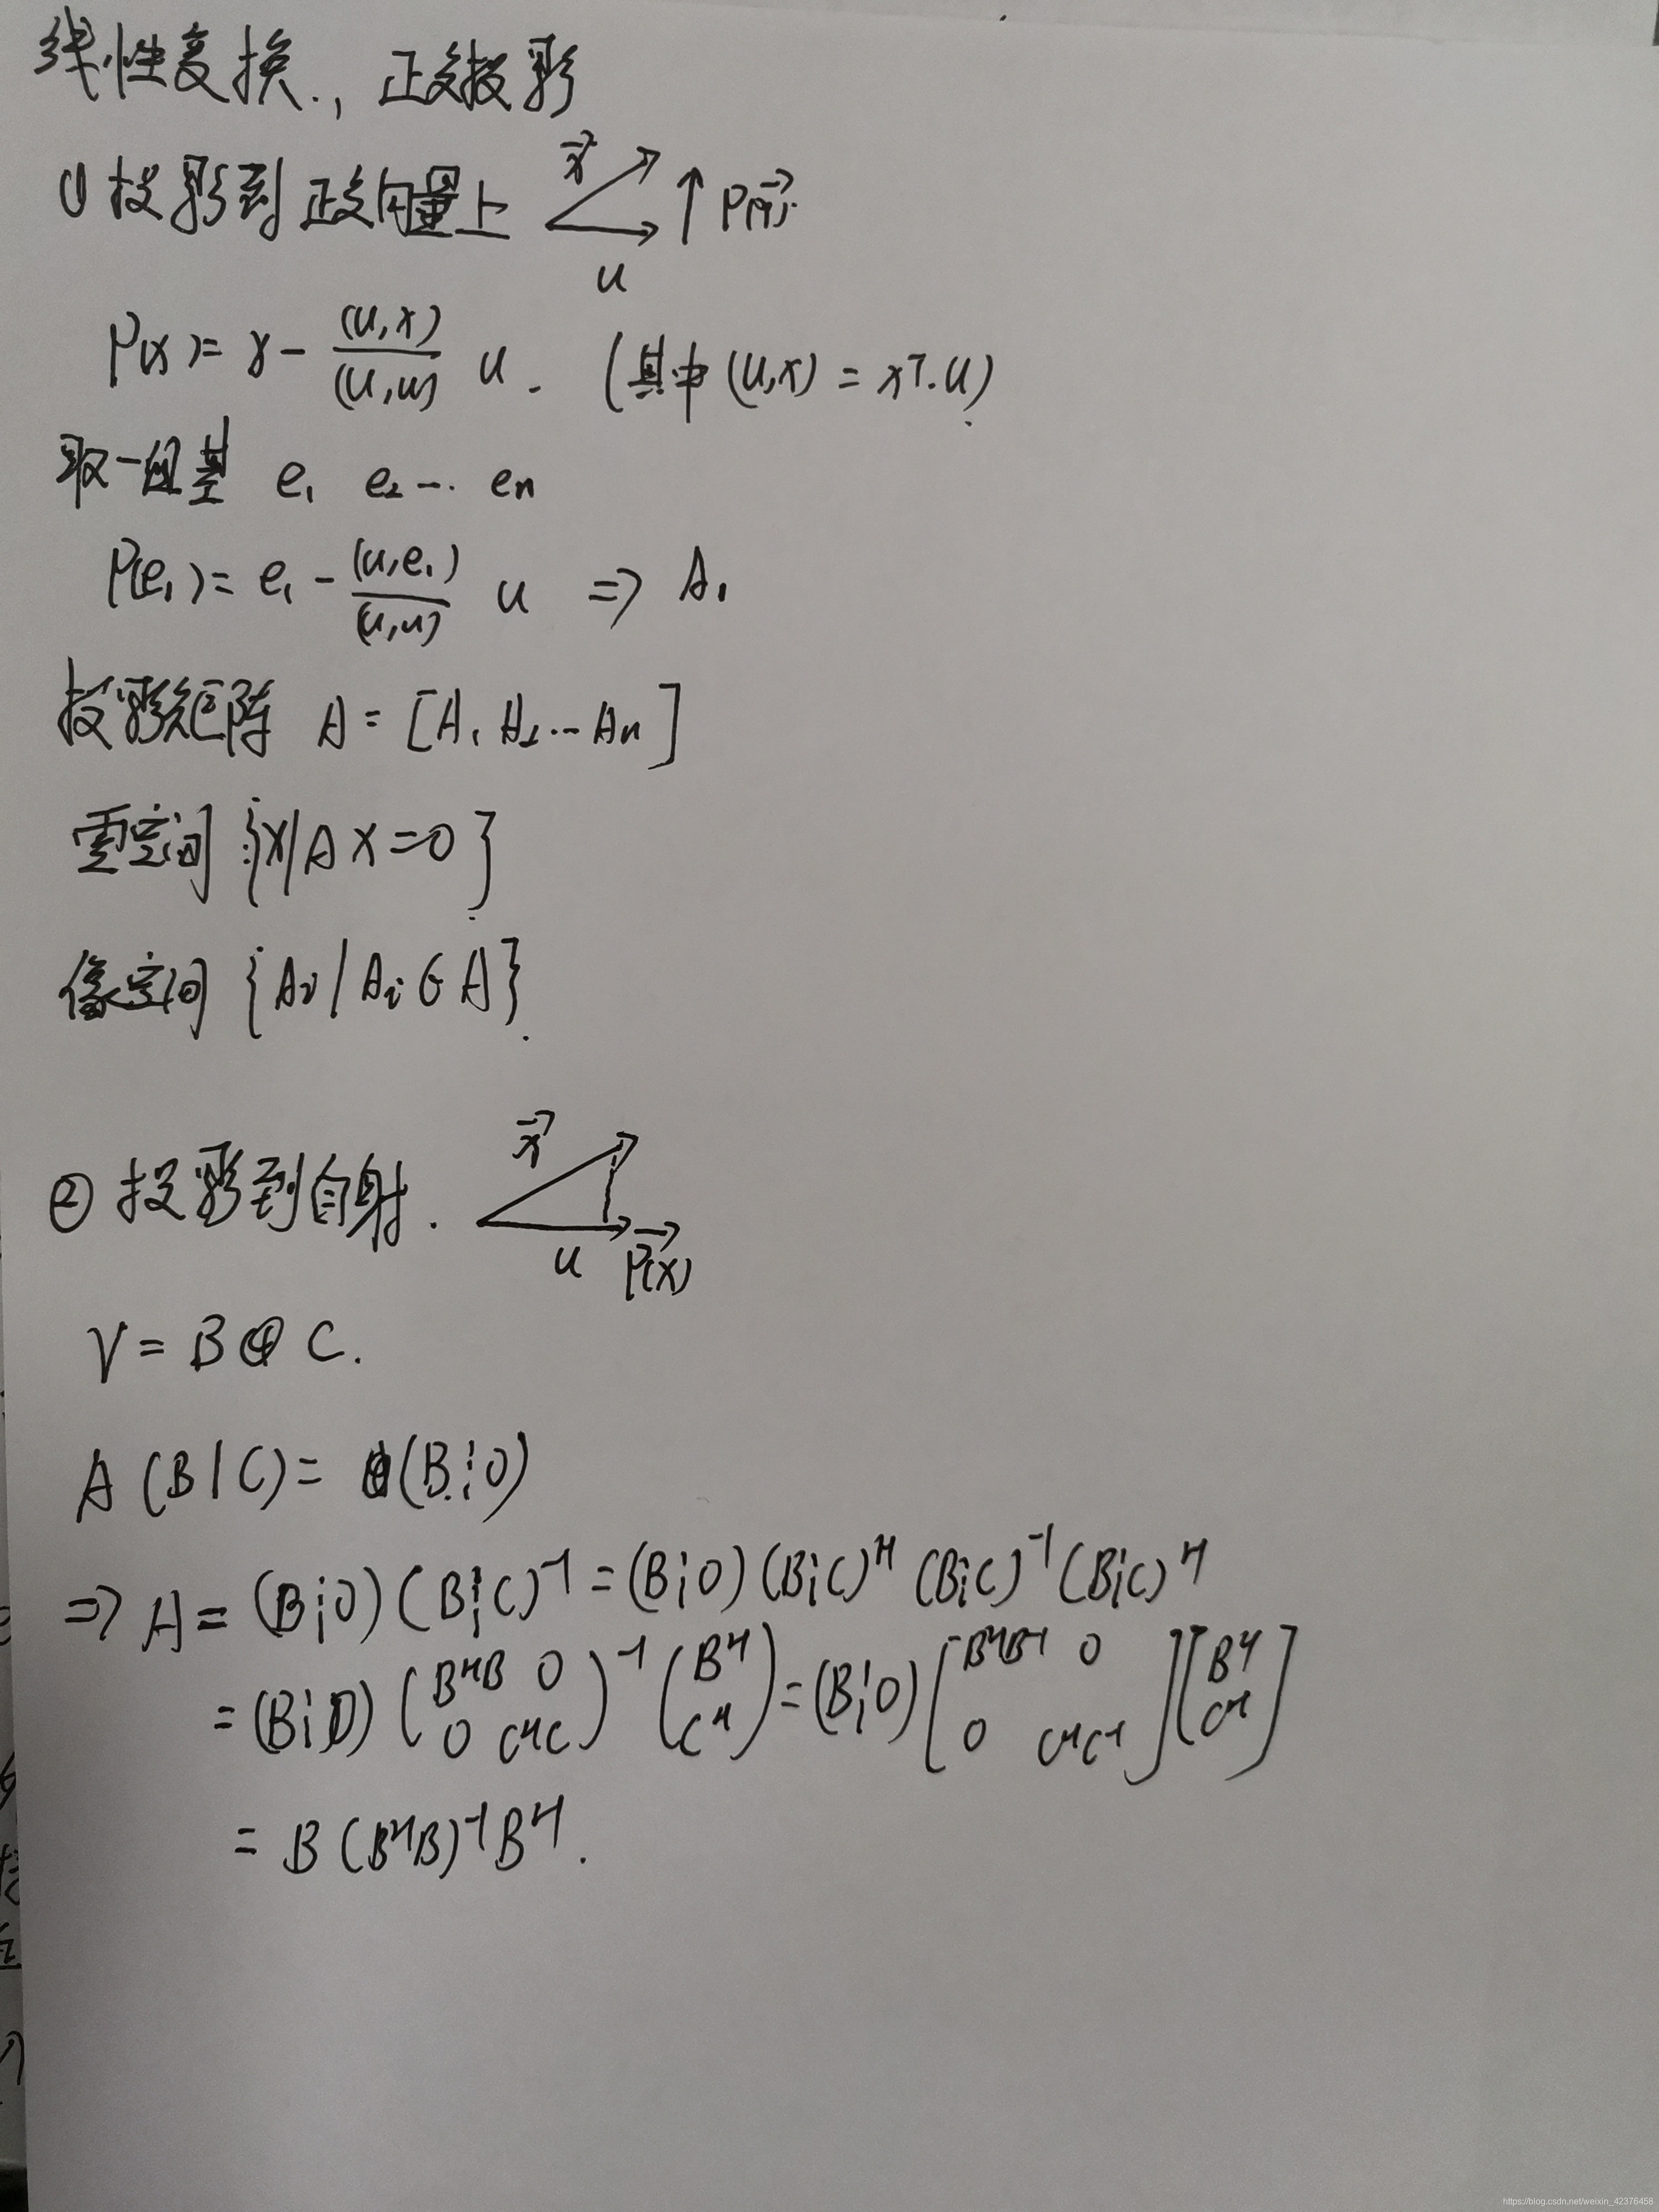 线性变换., 正交投影
① 投影到正交向量上 x⃗ u P(x⃗).
P(x) = x - (u,x)/(u,u) u. (其中(u,x) = xᵀ.u)
取一组基 e₁ e₂ -- eₙ
P(e₁) = e₁ - (u,e₁)/(u,u) u => A₁
投影矩阵 A = [A₁ A₂ -- Aₙ]
零空间 {x|Ax=0}
像空间 {Aᵢ | Aᵢ ∈ A}.
② 投影到自射. x⃗ u P(x)
V = B ⊕ C.
A (B | C) = (B ¦ 0)
=> A = (B¦0)(B¦C)⁻¹ = (B¦0)(B¦C)ᴴ (B¦C)⁻¹ (B¦C)ᴴ
= (B¦0) (BᴴB 0 0 CᴴC)⁻¹ (Bᴴ Cᴴ) = (B¦0) [BᴴB⁻¹ 0 0 CᴴC⁻¹] [Bᴴ Cᴴ]
= B (BᴴB)⁻¹ Bᴴ.
https://blog.csdn.net/weixin_42376458